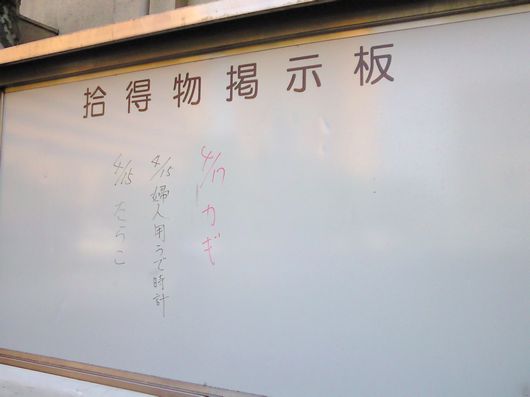 拾得物掲示板
4/17 カギ
4/15 婦人用うで時計
4/15 たらこ